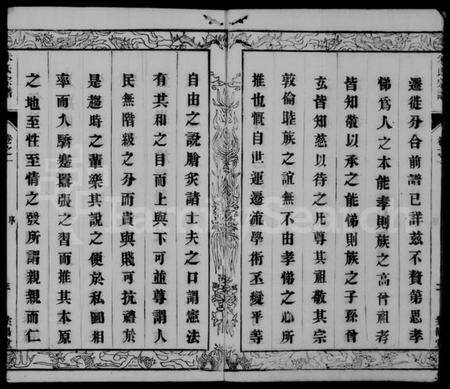 遷徙分合前譜已詳茲不贅第思孝
悌為人之本能孝則族之高曾祖考
皆知敬以承之能悌則族之子孫曾
玄皆知慈以待之凡尊其祖敬其宗
敦倫睦族之誼無不由孝悌之心所
推也慨自世運遷流學術丕變平等
自由之說膾炙諸士夫之口謂憲法
有其和之目而上與下可並尊謂人
民無階級之分而貴與賤可抗禮於
是趨時之輩樂其說之便於私圖相
率而入驕蹇囂張之習而推其本原
之地至性至情之發所謂親親而仁